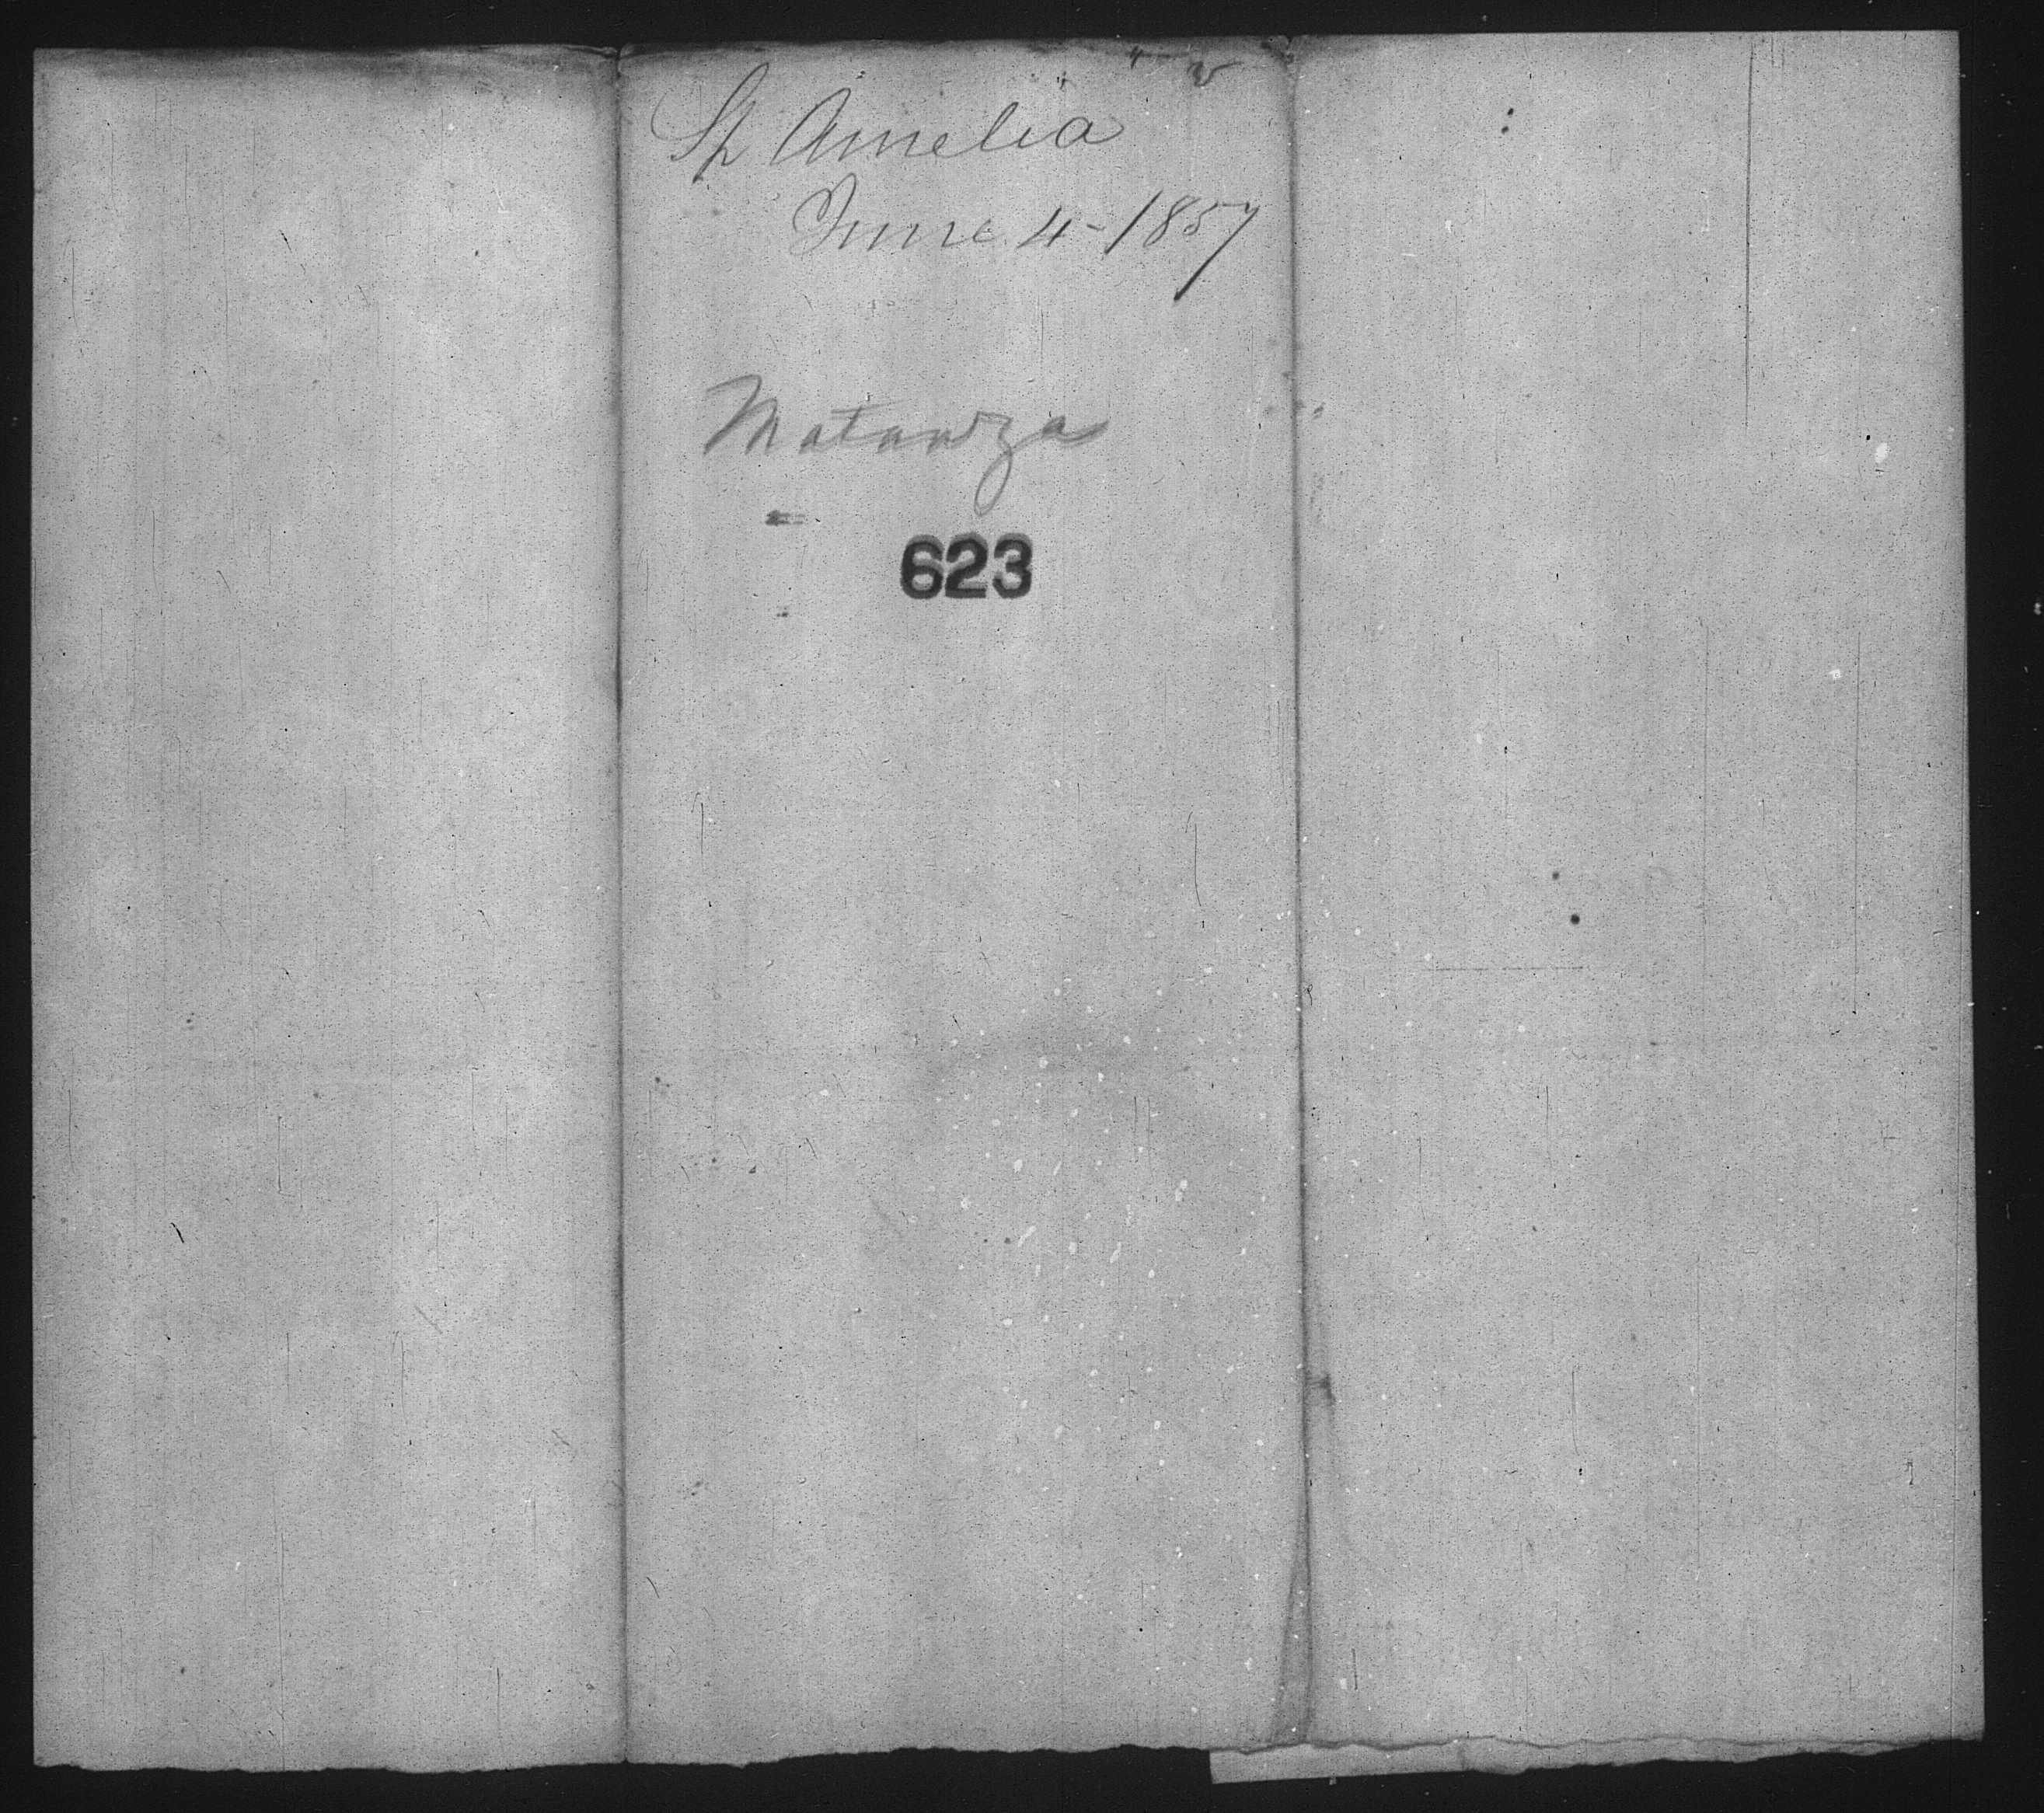 Sp Amelia
June 4-1857
Matanzas
623